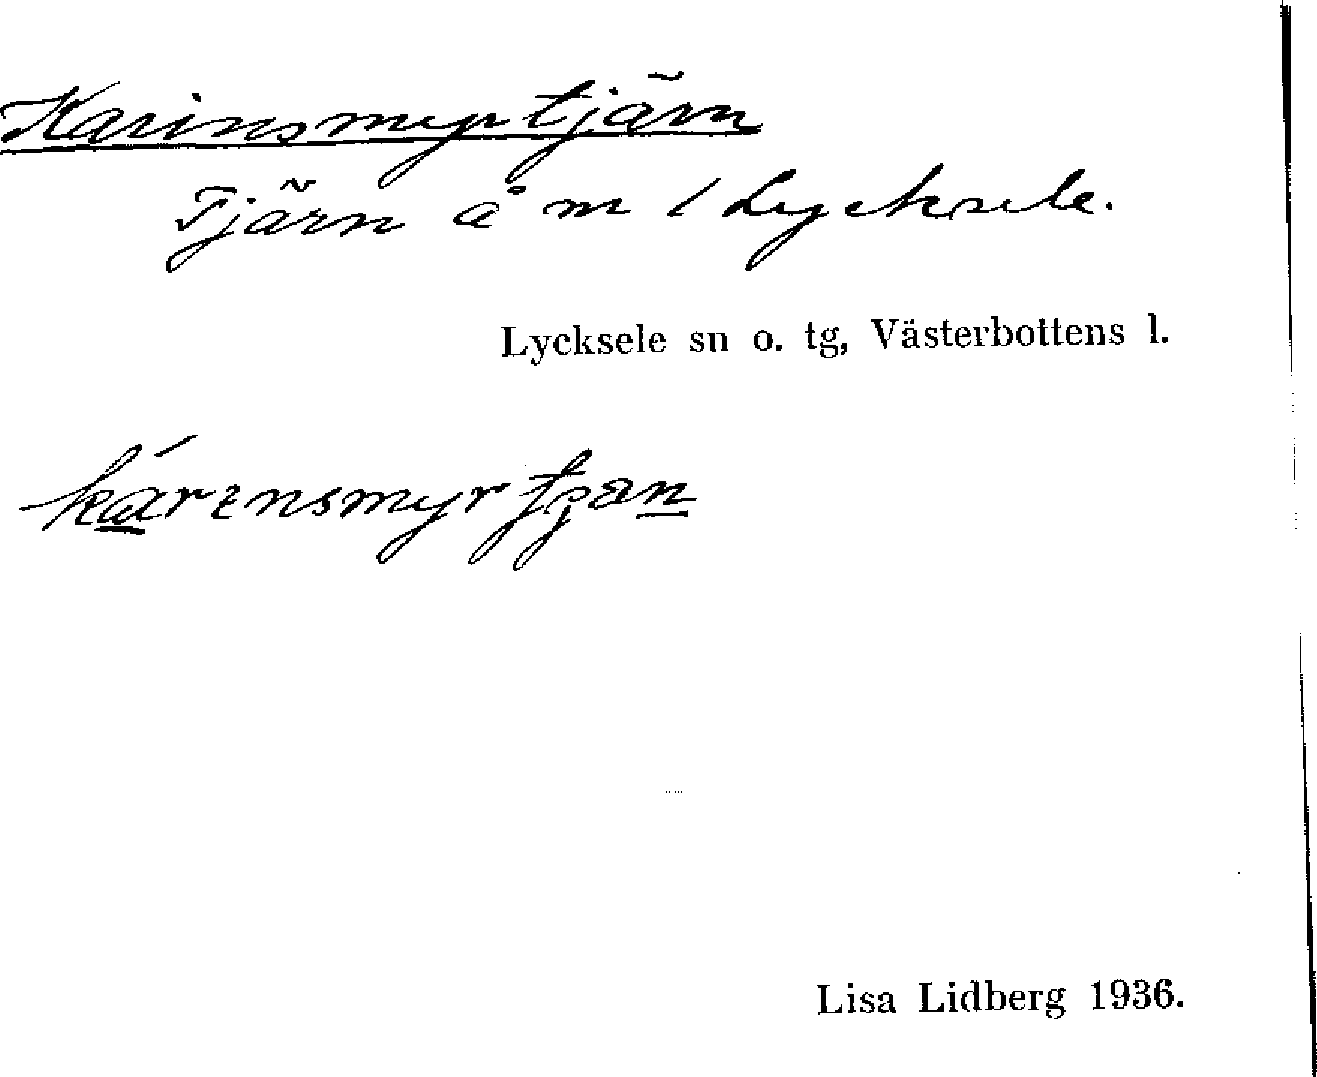 Karinsmyrtjärn
Tjärn å m / Lycksele.
Lycksele sn o. tg, Västerbottens l.
Lisa Lidberg 1936.